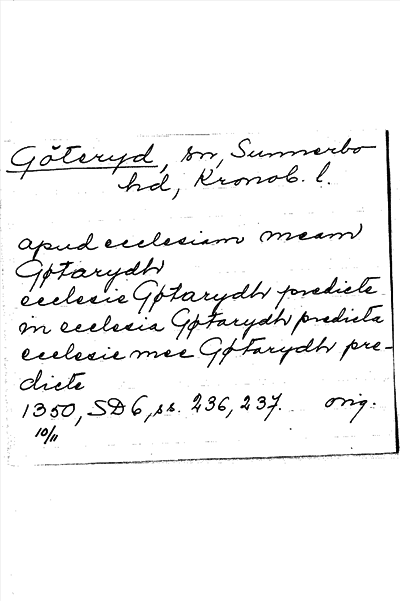 Göteryd, sn, Sunnerbo
hd, Kronob. l.
apud ecclesiam meam
Gøtarydh
ecclesie Gøtarydh predicte
in ecclesia Gøtarydh predicta
ecclesie mee Gøtarydh pre-
dicte
1350, SD 6, ss. 236, 237. orig.
10/11